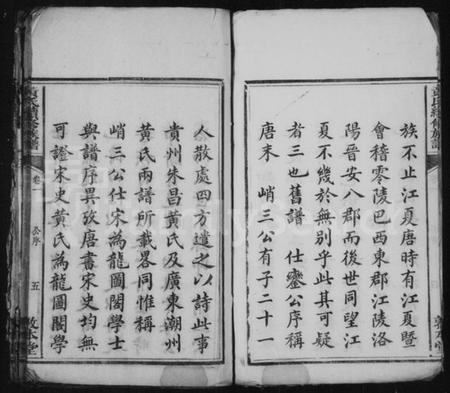 族不止江夏唐時有江夏暨
會稽零陵巴西東郡江陵洛
陽晉安八郡而後世同望江
夏不幾於無別乎此其可疑
者三也舊譜 仕鑾公序稱
唐末 峭三公有子二十一
人散處四方遣之以詩此事
貴州朱昌黃氏及廣東潮州
黃氏兩譜所載畧同惟稱
峭三公仕宋為龍圖閣學士
與譜序異攷唐書宋史均無
可證宋史黃氏為龍圖閣學
黃氏續修族譜
卷一
公序
五
敦本堂